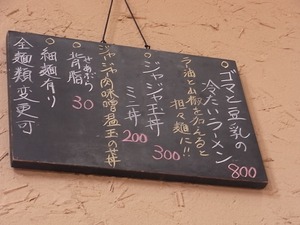 ○ゴマと豆乳の
冷たいラーメン
800
ラー油と山椒を加えると
担々麺に!!
300
○ジャジャ玉丼
ミニ丼
200
ジャージャー肉味噌温玉の丼
○背脂
せあぶら
30
○細麺有り
全麺類変更可